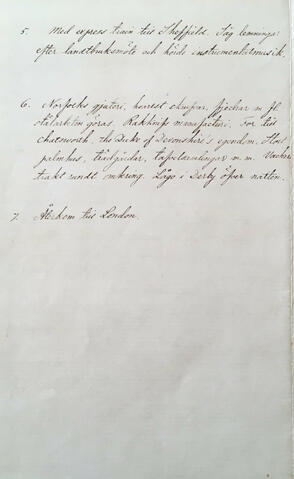 5. Med express train till Sheffield. Såg
efter landtbruksmöte och hörde instrumentalmusik.
6. Norfolks gjuteri, hvarest skupor, fjedrar m. fl.
stålarbeten göras. Rakknifs manufacturi. For till
Chatsworth, the Duke of Devonshire's egendom. Stort
palmhus, trädgårdar, tafvelsamlingar m. m. Vacker
trakt rundt omkring. Lågo i Derby öfver natten.
7. Återkom till London.